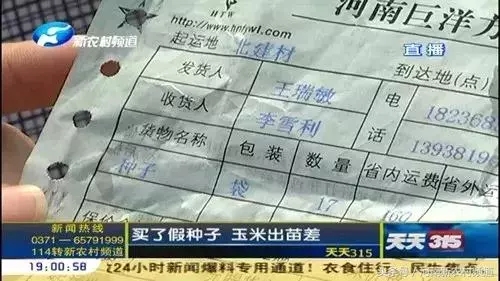 HTW
河南巨洋
新农村频道
http://www.hnhwl.com
直播
起运地 北建材
到达地(点)
发货人 王瑞敏 电 18236
收货人 李雪利 话 1393819
货物名称 包装 数量 省内运费 省外
种子 袋 17 160
新闻热线
0371—65791999
114转新农村频道
19:00:58
买了假种子 玉米出苗差
天天315
天天315
24小时新闻爆料专用通道!衣食住行